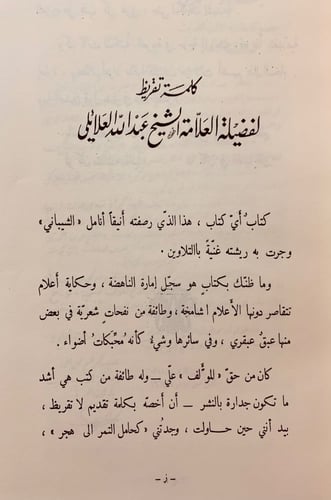 كلمة تقريظ
لفضيلة العلامة الشيخ عبد الله العلايلي
كتابٌ أيّ كتاب ، هذا الذّي رصفته أنيقاً أنامل « الشيباني »
وجرت به ريشته غنّيةً باالتلاوين .
وما ظنّك بكتابٍ هو سجّل إمارة الناهضة ، وحكاية أعلام
تتقاصر دونها الأعلام اشامخة ، وطائفة من نفحات شعريّة في بعض
منها عبقٌ عبقري ، وفي سائرها وشيءُ كأنه مُحبّكاتُ أضواء .
كان من حقّ « للمؤلف » عليّ ــ وله طائفة من كتب هي أشد
ما تكون جدارة بالنشر ــ أن أخصّه بكلمة تقديم لا تقريظ ،
بيد أنني حين حاولت ، وجدتُني « كحامل التمر الى هجر » ،
ــ ز ــ